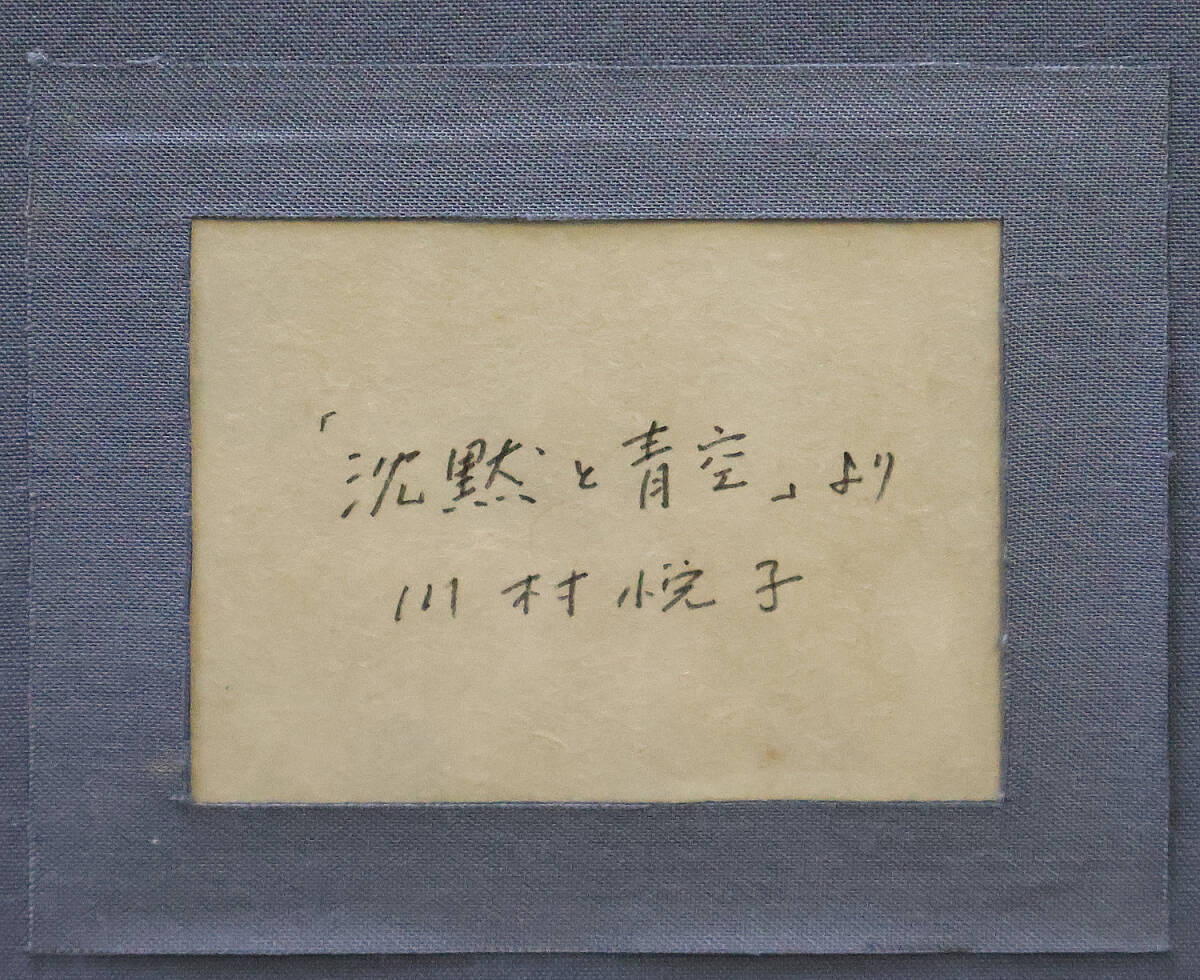 「沈黙と青空」より
川村悦子